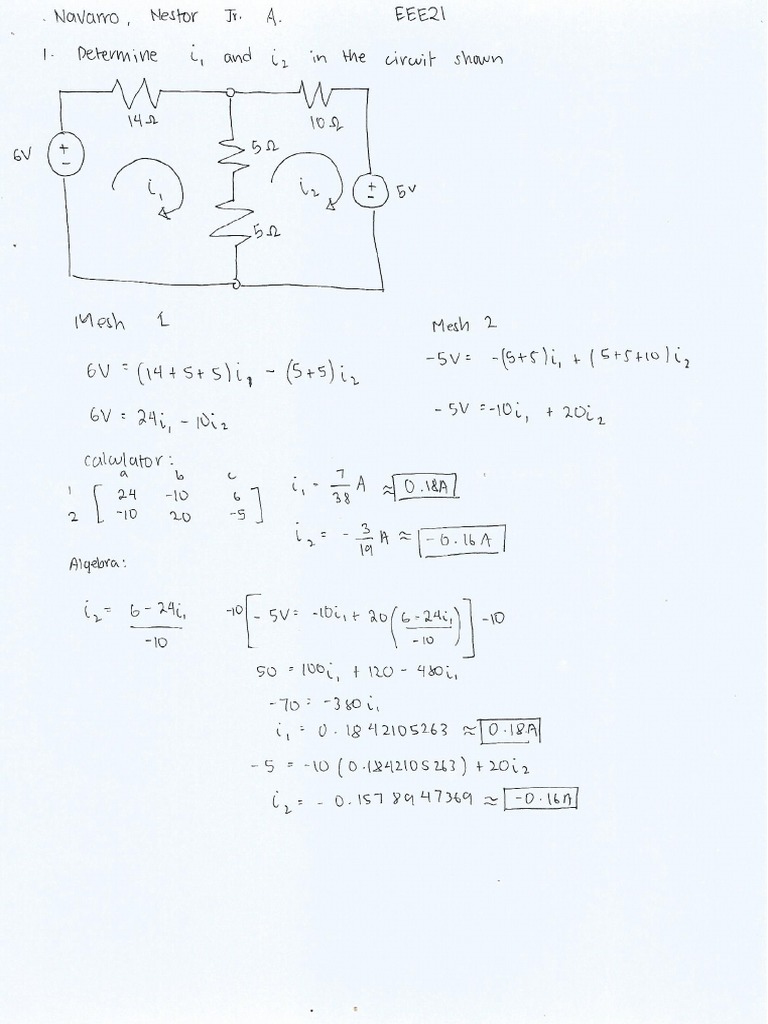 Navarro, Nestor Jr. A. EEE21
1. Determine i₁ and i₂ in the circuit shown
14Ω 10Ω
6V + − 5Ω
i₁ i₂ + − 5V
5Ω
Mesh 1 Mesh 2
6V = (14+5+5)i₁ - (5+5)i₂ -5V = -(5+5)i₁ + (5+5+10)i₂
6V = 24i₁ - 10i₂ -5V = -10i₁ + 20i₂
calculator:
a b c
1 [ 24 -10 6 ] i₁ - 7/38 A ≈ 0.18A
2 [ -10 20 -5 ] i₂ = - 3/19 A ≈ -0.16A
Algebra:
i₂ = (6-24i₁)/-10 -10[-5V = -10i₁ + 20((6-24i₁)/-10)] -10
50 = 100i₁ + 120 - 480i₁
-70 = -380i₁
i₁ = 0.1842105263 ≈ 0.18A
-5 = -10(0.1842105263) + 20i₂
i₂ = -0.1578947369 ≈ -0.16A